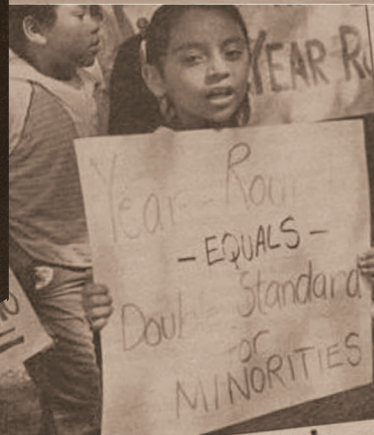 YEAR R
Year-Roun
- EQUALS -
Doub Standard
or
MINORITIES